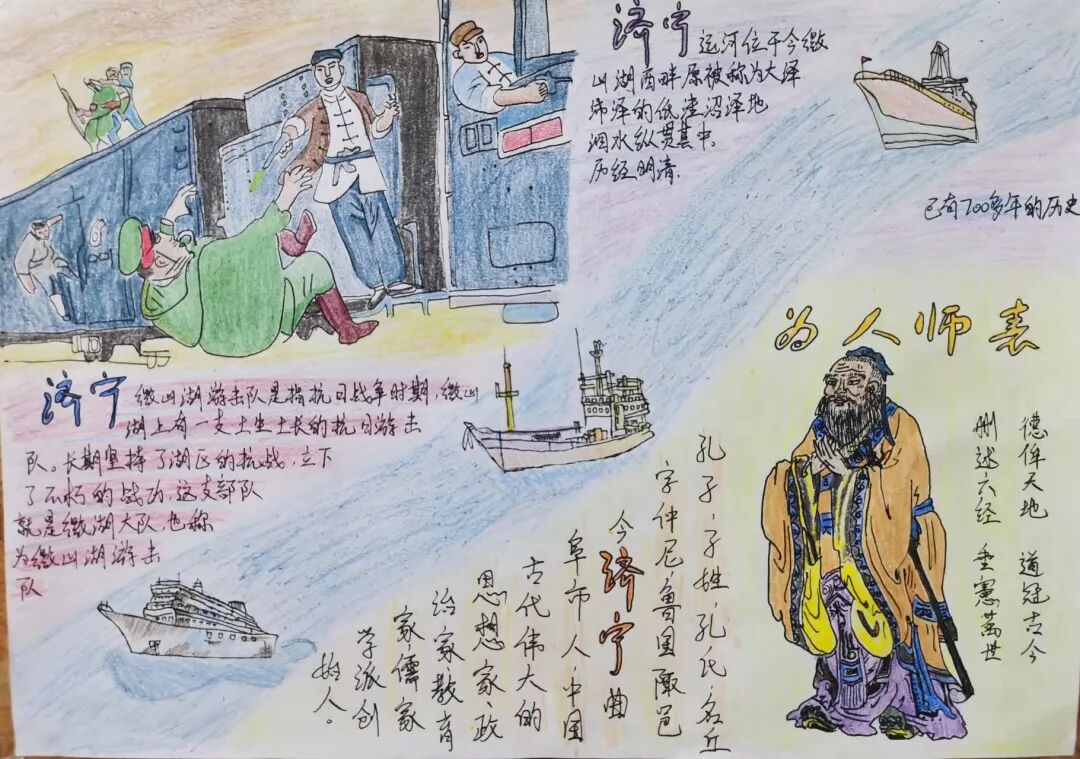 济宁 运河位于今微
山湖西畔原被称为大泽
沛泽的低洼沼泽地
泗水纵贯其中。
历经明清.
已有700多年的历史
济宁 微山湖游击队是指抗日战争时期,微山
湖上有一支土生土长的抗日游击
队。长期坚持了湖区的抗战,立下
了不朽的战功,这支部队
就是微湖大队,也称
为微山湖游击
队
为人师表
德侔天地 道冠古今
删述六经 垂憲萬世
孔子,子姓,孔氏,名丘
字仲尼鲁国陬邑
今济宁曲
阜市人中国
古代伟大的
思想家、政
治家教育
家儒家
学派创
始人。